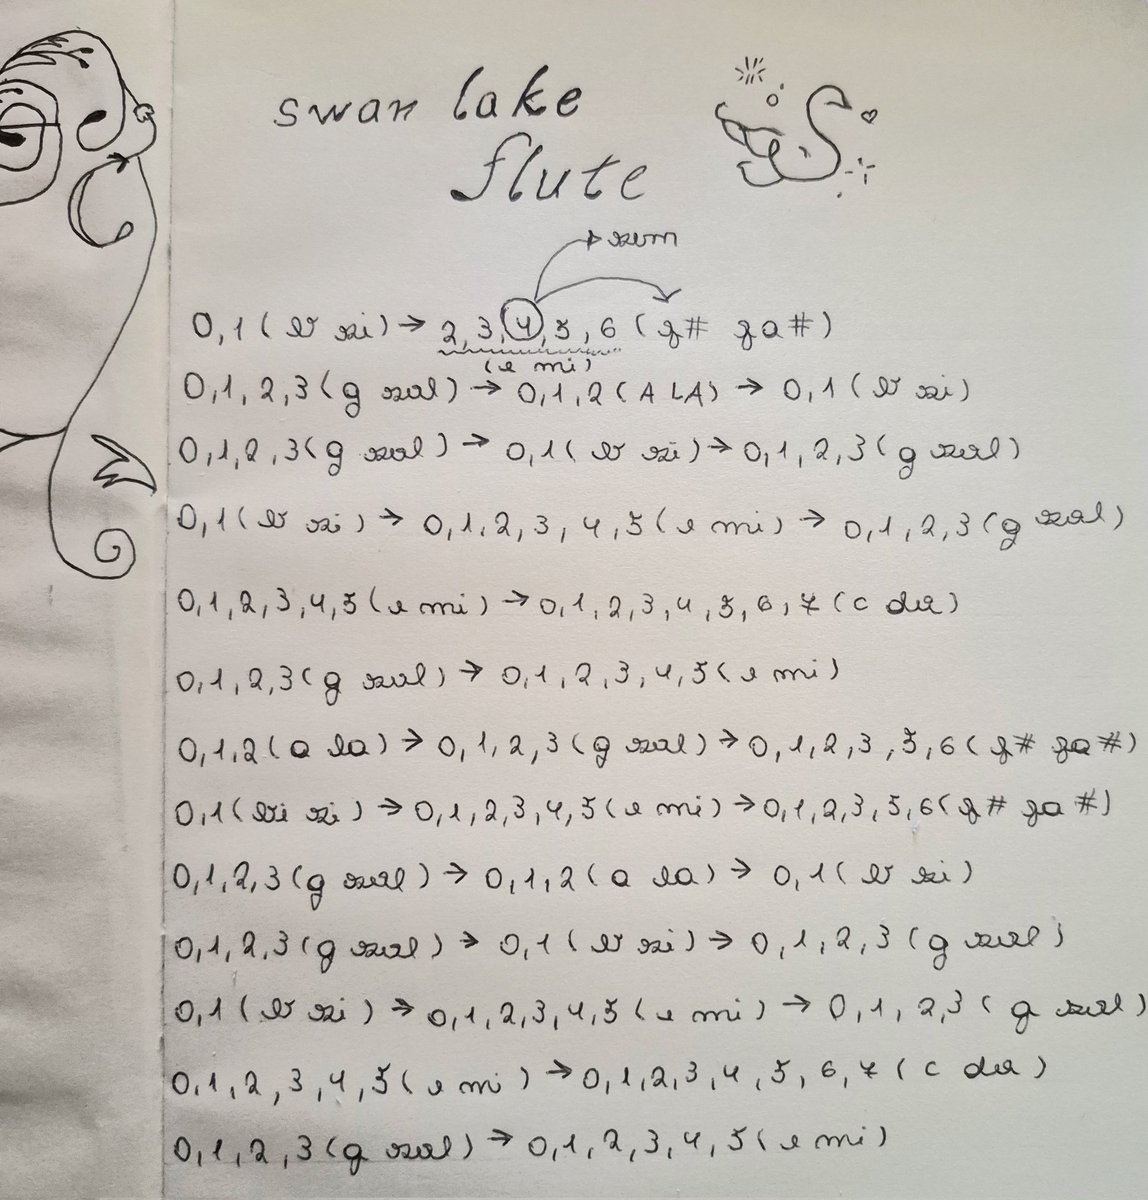 swan lake
flute
szum
0,1 (b szi) → 2,3,4,5,6 (f# fa#)
(e mi)
0,1,2,3 (g szol) → 0,1,2 (A LA) → 0,1 (b szi)
0,1,2,3 (g szol) → 0,1 (b szi) → 0,1,2,3 (g szol)
0,1 (b szi) → 0,1,2,3,4,5 (e mi) → 0,1,2,3 (g szol)
0,1,2,3,4,5 (e mi) → 0,1,2,3,4,5,6,7 (c do)
0,1,2,3 (g szol) → 0,1,2,3,4,5 (e mi)
0,1,2 (a la) → 0,1,2,3 (g szol) → 0,1,2,3,5,6 (f# fa#)
0,1 (bi szi) → 0,1,2,3,4,5 (e mi) → 0,1,2,3,5,6 (f# fa#)
0,1,2,3 (g szol) → 0,1,2 (a la) → 0,1 (b szi)
0,1,2,3 (g szol) → 0,1 (b szi) → 0,1,2,3 (g szol)
0,1 (b szi) → 0,1,2,3,4,5 (e mi) → 0,1,2,3 (g szol)
0,1,2,3,4,5 (e mi) → 0,1,2,3,4,5,6,7 (c do)
0,1,2,3 (g szol) → 0,1,2,3,4,5 (e mi)